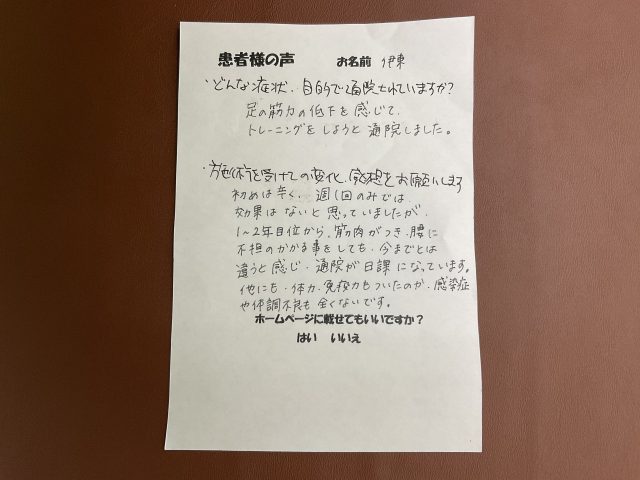 患者様の声 お名前 伊東
・どんな症状、目的で通院されていますか?
足の筋力の低下を感じて、
トレーニングをしようと通院しました。
・施術を受けての変化、感想をお願いします
初めは辛く、週1回のみでは
効果はないと思っていましたが、
1～2年目位から、筋肉がつき、腰に
不担のかかる事をしても、今までとは
違うと感じ、通院が日課になっています。
他にも、体力、免疫力もついたのか、感染症
や体調不良も全くないです。
ホームページに載せてもいいですか?
はい いいえ